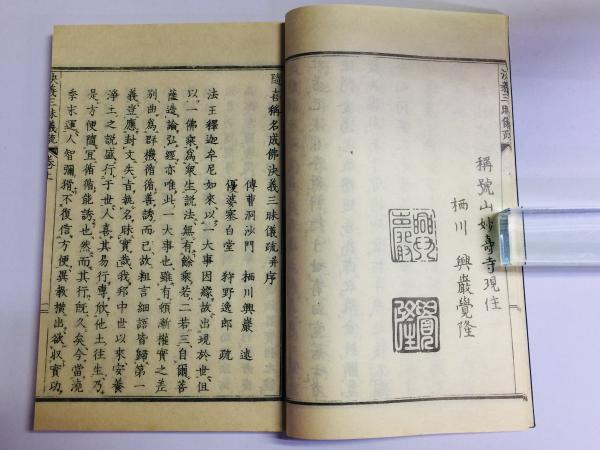 決義三昧儀疏
稱號山妙壽寺現住
栖川興巖覺隆
興巖
覺隆
隨者稱名成佛決義三昧儀疏并序
傳曹洞沙門 栖川興巖 述
優婆塞白堂 狩野逸郎 疏
法王釋迦牟尼如來以一大事因緣故出現於世但
以一佛乘為眾生説法無有餘乘若二若三自爾菩
薩造論弘經亦唯此一大事也雖有領漸權實之差
別曲為群機循循善誘而已故粗言細語皆歸第一
義豈應封文失旨執名昧實哉我邦中世以來安養
淨土之説盛行于世人喜其易行專欣他土往生乃
是方便隨宜循循能誘也然而其行既久矣今當澆
季末運人智彌猾不復信方便異教橫出欲収實功
決義三昧儀疏 卷上